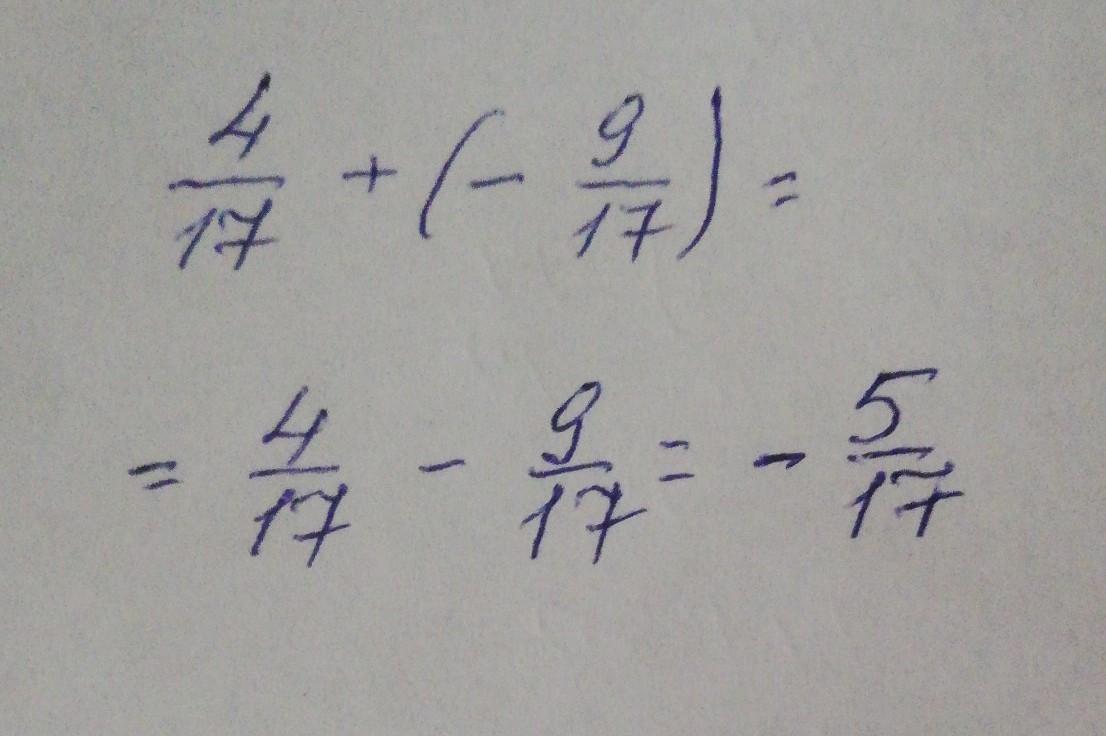 4/17 + (- 9/17) =
= 4/17 - 9/17 = - 5/17